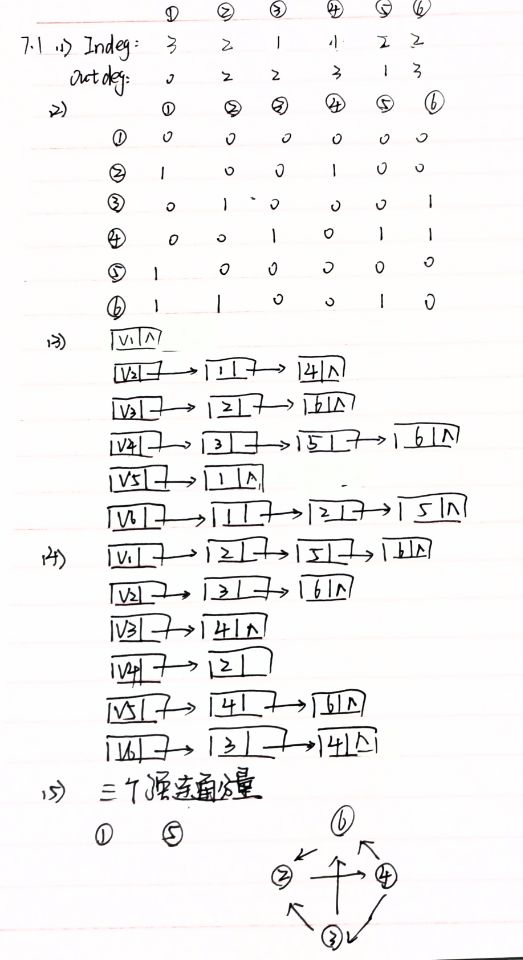 ① ② ③ ④ ⑤ ⑥
7.1 (1) Indeg: 3 2 1 1 2 2
Outdeg: 0 2 2 3 1 3
(2) ① ② ③ ④ ⑤ ⑥
① 0 0 0 0 0 0
② 1 0 0 1 0 0
③ 0 1 0 0 0 1
④ 0 0 1 0 1 1
⑤ 1 0 0 0 0 0
⑥ 1 1 0 0 1 0
(3) V1 ∧
V2 → 1 → 4 ∧
V3 → 2 → 6 ∧
V4 → 3 → 5 → 6 ∧
V5 → 1 ∧
V6 → 1 → 2 → 5 ∧
(4) V1 → 2 → 5 → 6 ∧
V2 → 3 → 6 ∧
V3 → 4 ∧
V4 → 2
V5 → 4 → 6 ∧
V6 → 3 → 4 ∧
(5) 三个强连通分量
① ⑤ ⑥
② ④
③